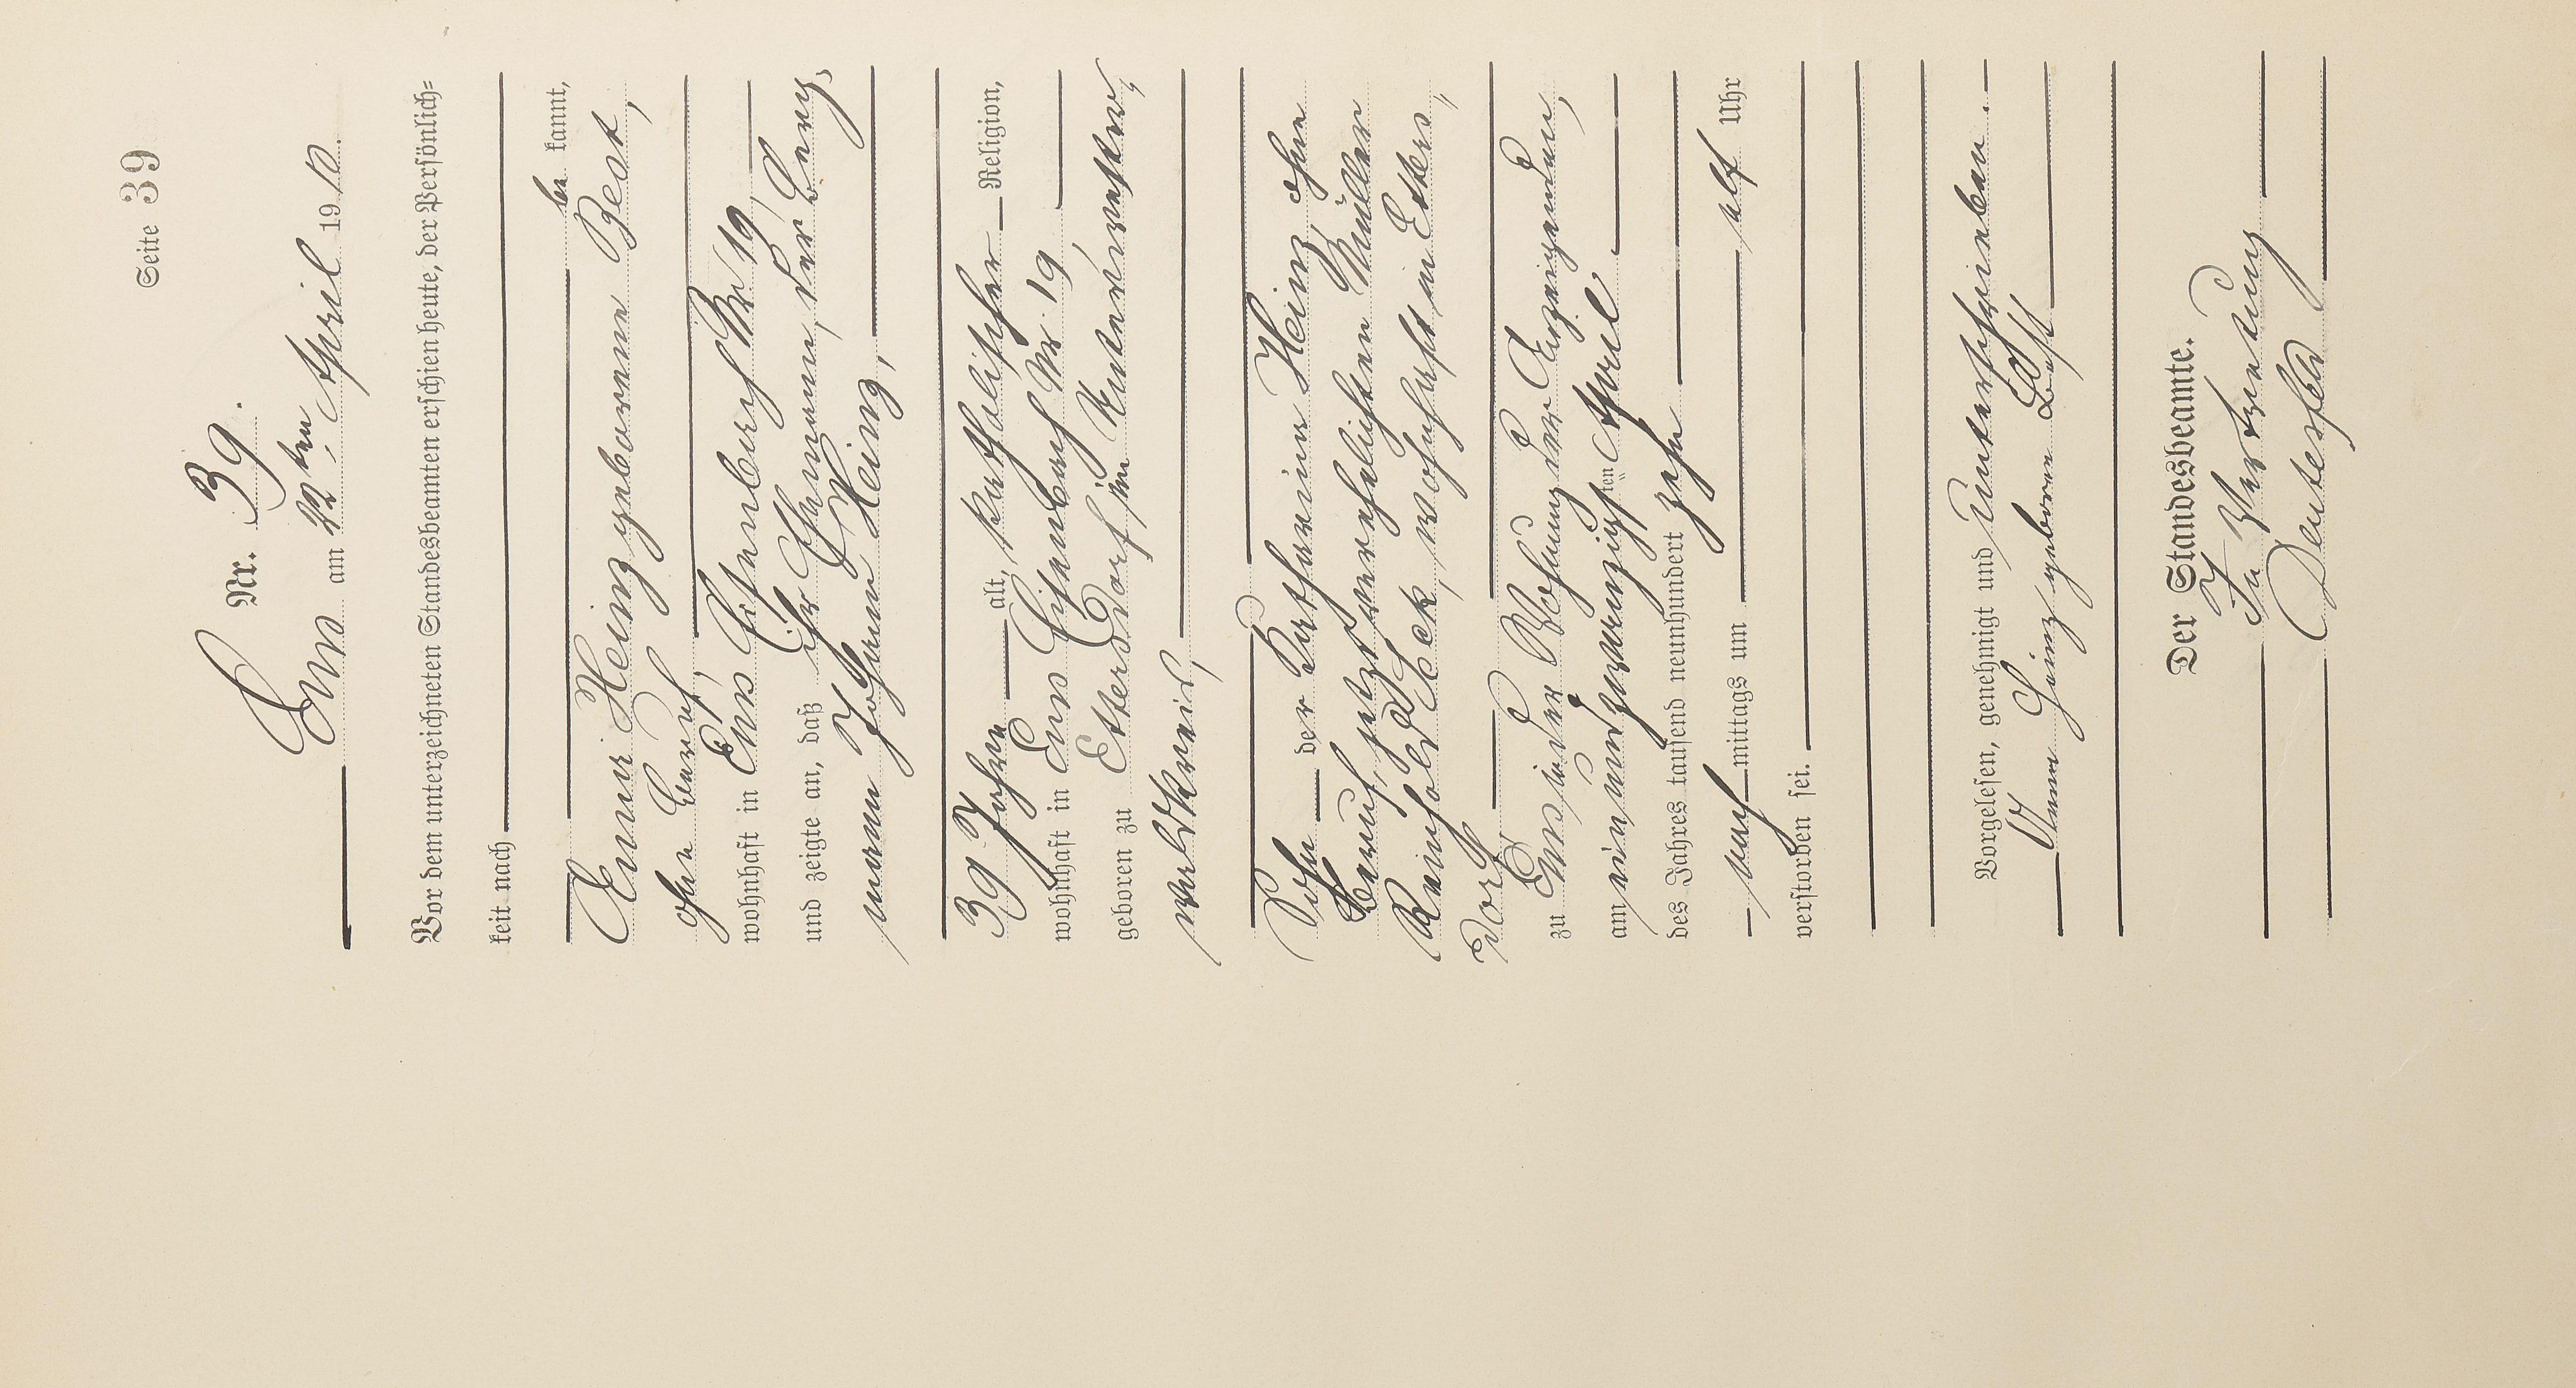 Seite 39
Nr. 39.
Ems am 22ten April 1910.
Vor dem unterzeichneten Standesbeamten erschien heute, der Persönlich=
keit nach
be kannt,
Anna Heinz geborene Best,
ohne Beruf,
wohnhaft in Ems, Eisenbach Nr. 19,
und zeigte an, daß ihr Ehemann, der Berg-
mann Johann Heinz,
39 Jahre alt, katholischer Religion,
wohnhaft in Ems Eisenbach Nr. 19,
geboren zu Ettersdorf im Unterwester-
waldkreis,
Sohn der Katharina Heinz, ohne
Beruf, jetzt verehelichten Müller
Reinhold Heck, wohnhaft in Etters-
dorf
zu Ems in der Wohnung der Anzeigenden,
am einundzwanzigsten April
des Jahres tausend neunhundert zehn
nach mittags um elf Uhr
verstorben sei.
Vorgelesen, genehmigt und unterschrieben.
Anna Heinz geborene Best
Der Standesbeamte.
In Vertretung